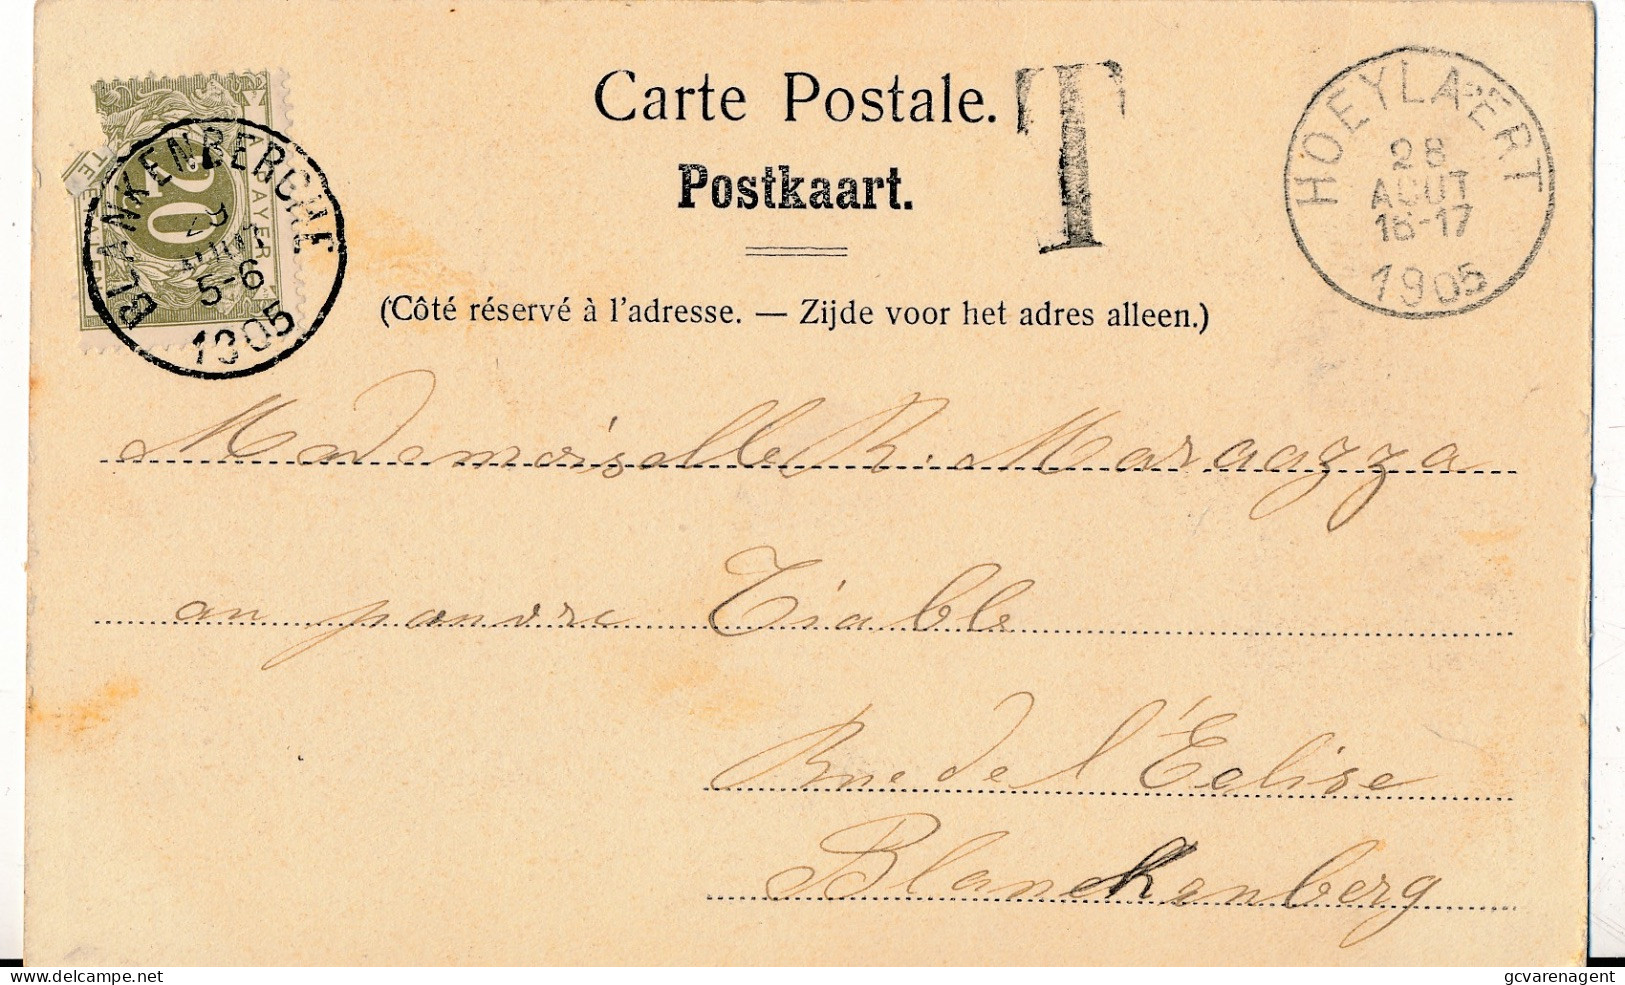 Carte Postale.
Postkaart.
T
HOEYLAERT
28
AOUT
16-17
1905
20
A PAYER
BLANKENBERGHE
AOUT
5-6
1905
(Côté réservé à l'adresse. — Zijde voor het adres alleen.)
Mademoiselle R. Maragzza
au pauvre Diable
Rue de l'Eclise
Blanckenberg
www.delcampe.net
gcvarenagent